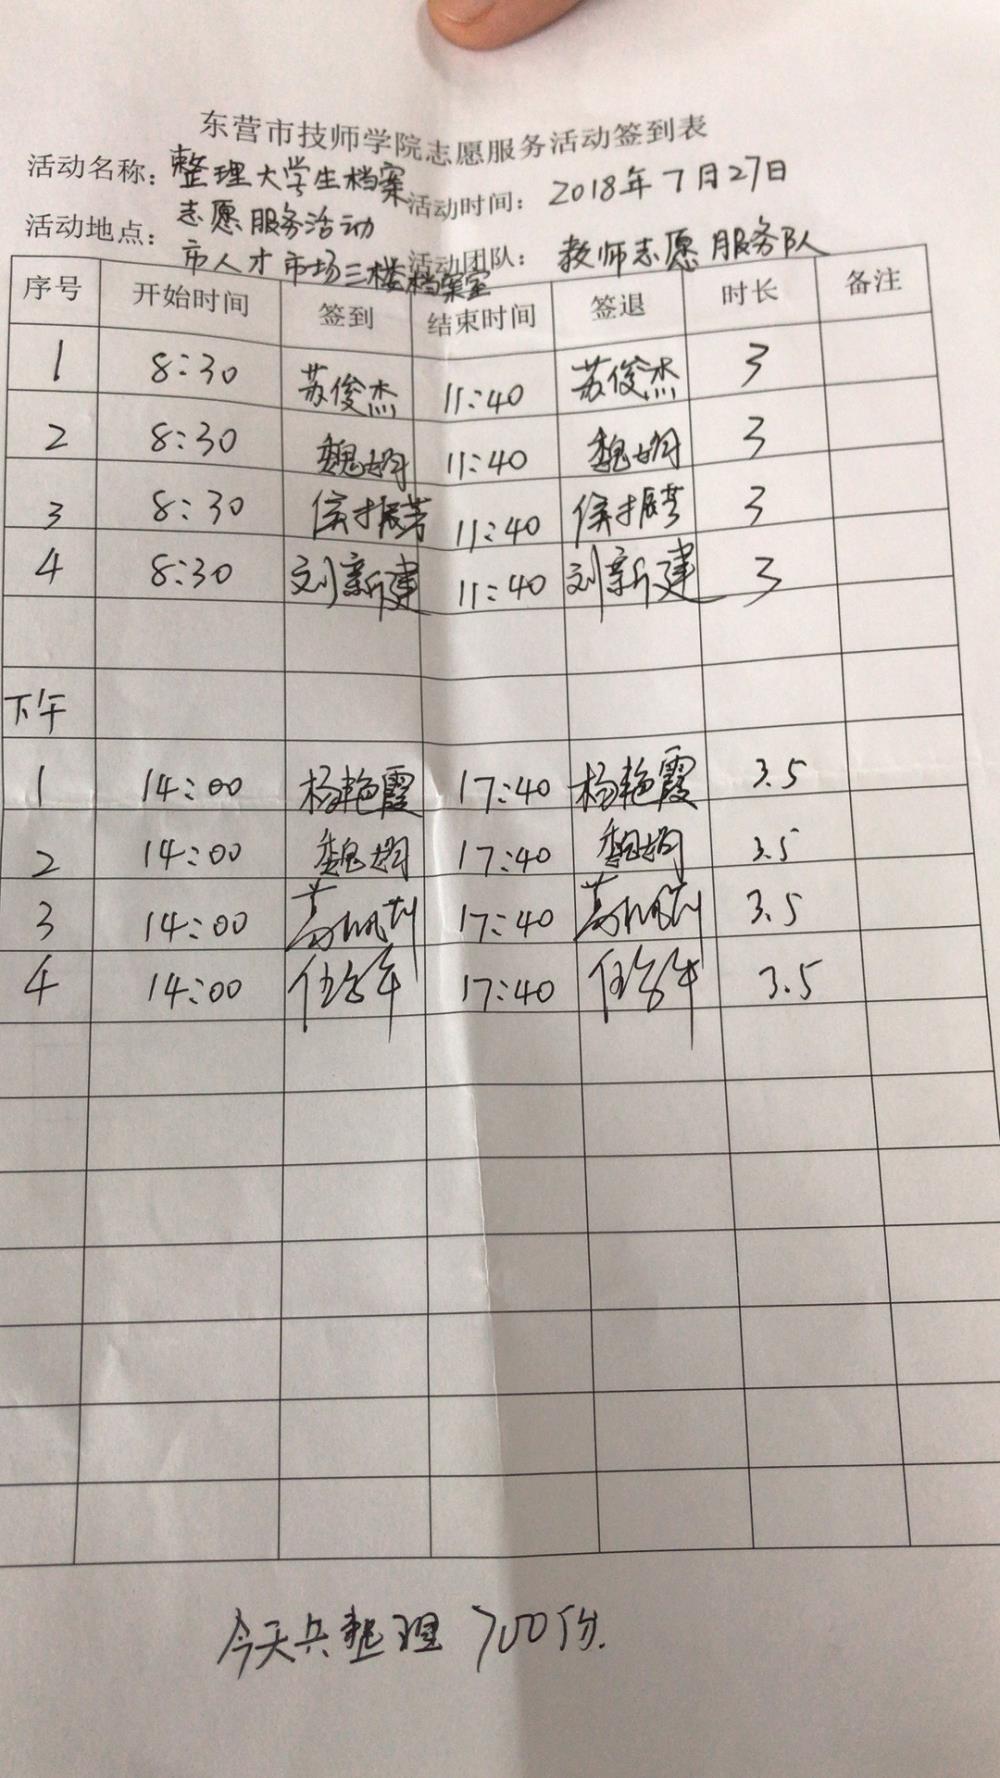 东营市技师学院志愿服务活动签到表
活动名称：整理大学生档案志愿服务活动 活动时间：2018年7月27日
活动地点：市人才市场三楼档案室 活动团队：教师志愿服务队
序号 开始时间 签到 结束时间 签退 时长 备注
1 8:30 苏俊杰 11:40 苏俊杰 3
2 8:30 魏娟 11:40 魏娟 3
3 8:30 侯振芳 11:40 侯振芳 3
4 8:30 刘新建 11:40 刘新建 3
下午
1 14:00 杨艳霞 17:40 杨艳霞 3.5
2 14:00 魏娟 17:40 魏娟 3.5
3 14:00 17:40 3.5
4 14:00 17:40 3.5
今天共整理700份.